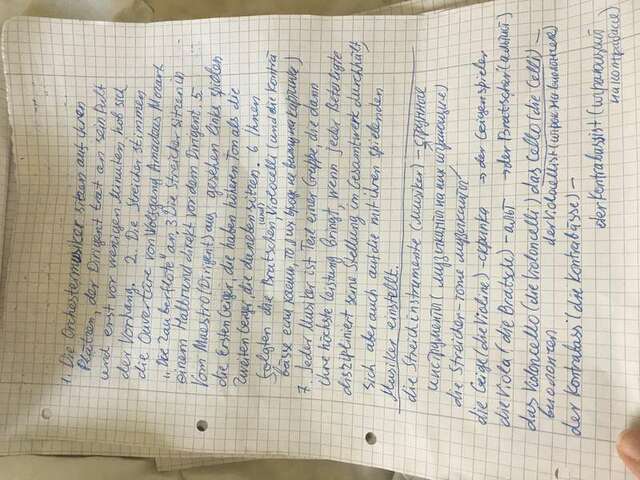 1. Die Orchestermusiker sitzen auf ihren
Plätzen, der Dirigent trat an sein Pult
und erst vor wenigen Minuten hob sich
der Vorhang. 2. Die Streicher stimmen
die Ouvertüre von Wolfgang Amadeus Mozart
"Die Zauberflöte" an. 3 Die Streicher sitzen in
einem Halbrund direkt vor dem Dirigent. 5
Vom Maestro (Dirigent) aus gesehen links spielen
die Ersten Geige, die haben höheren Ton als die
Zweiten Geige, die daneben sitzen. 6 Ihnen
folgten die Bratschen, (und) Violoncelli (und die Kontra
bässe
7. Jeder Musiker ist Teil einer Gruppe, die dann
ihre höchste Leistung bringt, wenn jeder Beteiligte
diszipliniert seine Stellung im Gesamtwerk durchhält,
sich aber auch auf die mit ihm spielenden
Musiker einstellt.
die Streichinstrumente (Musiker) – струнные
инструменты (музыканты на них играющие)
die Streicher – тоже музыканты
die Geige (die Violine) – скрипка → der Geigenspieler
die Viola (die Bratsche) – альт → der Bratscher (альтист)
das Violoncello (die Violoncelli) das Cello (die Celli) –
виолончель der Violoncellist (играющий на виолончели)
der Kontrabass (die Kontrabässe) –
der Kontrabassist (играющий
на контрабасе)